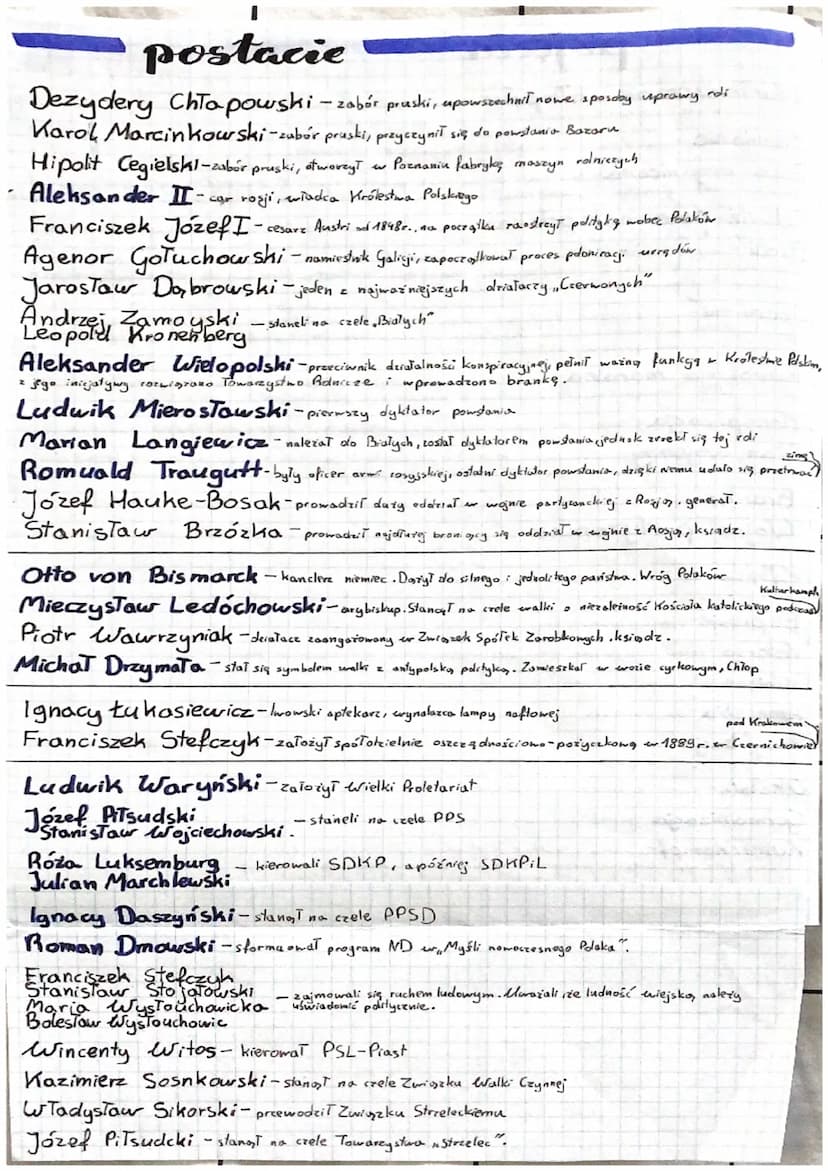 postacie
Dezydery Chłapowski – zabór pruski, upowszechnił nowe sposoby uprawy roli
Karol Marcinkowski – zabór pruski, przyczynił się do powstania Bazaru
Hipolit Cegielski – zabór pruski, otworzył w Poznaniu fabrykę maszyn rolniczych
Aleksander II – car rosji, władca Królestwa Polskiego
Franciszek Józef I – cesarz Austri od 1848r., na początku zaostrzył politykę wobec Polaków
Agenor Gołuchowski – namiestnik Galicji, zapoczątkował proces polonizacji urzędów
Jarosław Dąbrowski – jeden z najważniejszych działaczy „Czerwonych"
Andrzej Zamoyski
– staneli na czele „Białych"
Leopold Kronenberg
Aleksander Wielopolski – przeciwnik działalności konspiracyjnej, pełnił ważną funkcję w Królestwie Polskim,
z jego inicjatywy rozwiązano Towarzystwo Rolnicze i wprowadzono brankę.
Ludwik Mierosławski – pierwszy dyktator powstania
Marian Langiewicz – należał do Białych, został dyktatorem powstania jednak zrzekł się tej roli
Romuald Traugutt – były oficer armi rosyjskiej, ostatni dyktator powstania, dzięki niemu udało się przetrwać zimę
Józef Hauke-Bosak – prowadził duży oddział w wojnie partyzanckiej z Rosją. generał.
Stanisław Brzózka – prowadził najdłużej broniący się oddział w wojnie z Rosją, ksiądz.
Otto von Bismarck – kanclerz niemiec. Dążył do silnego i jednolitego państwa. Wróg Polaków
Mieczysław Ledóchowski – arybiskup. Stanął na czele walki o niezależność Kościoła katolickiego podczas Kulturkampfu
Piotr Wawrzyniak – działacz zaangażowany w Związek Spółek Zarobkowych. ksiądz.
Michał Drzymała – stał się symbolem walki z antypolską polityką. Zamieszkał w wozie cyrkowym, Chłop
Ignacy Łukasiewicz – lwowski aptekarz, wynalazca lampy naftowej
Franciszek Stefczyk – założył spółdzielnie oszczędnościowo-pożyczkową w 1889r. w Czernichowie pod Krakowem
Ludwik Waryński – założył Wielki Proletariat
Józef Piłsudski
– staneli na czele PPS
Stanisław Wojciechowski.
Róża Luksemburg – kierowali SDKP, a później SDKPiL
Julian Marchlewski
Ignacy Daszyński – stanął na czele PPSD
Roman Dmowski – sformuował program ND w „Myśli nowoczesnego Polaka".
Franciszek Stefczyk
Stanisław Stojałowski
– zajmowali się ruchem ludowym. Uważali, że ludność wiejską należy
Maria Wysłouchowicka
uświadomić politycznie.
Bolesław Wysłouchowic
Wincenty Witos – kierował PSL-Piast
Kazimierz Sosnkowski – stanął na czele Związku Walki Czynnej
Władysław Sikorski – przewodził Związku Strzeleckiemu
Józef Piłsudcki – stanął na czele Towarzystwa „Strzelec".